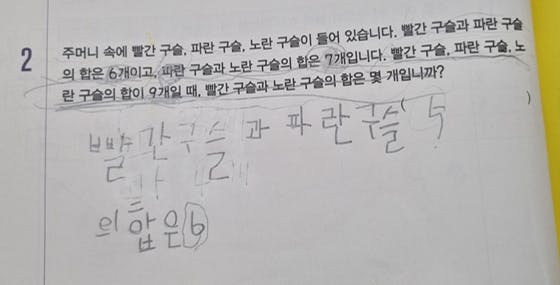 2
주머니 속에 빨간 구슬, 파란 구슬, 노란 구슬이 들어 있습니다. 빨간 구슬과 파란 구슬
의 합은 6개이고, 파란 구슬과 노란 구슬의 합은 7개입니다. 빨간 구슬, 파란 구슬, 노
란 구슬의 합이 9개일 때, 빨간 구슬과 노란 구슬의 합은 몇 개입니까?
)
빨간구슬과 파란구슬
의 합은 6